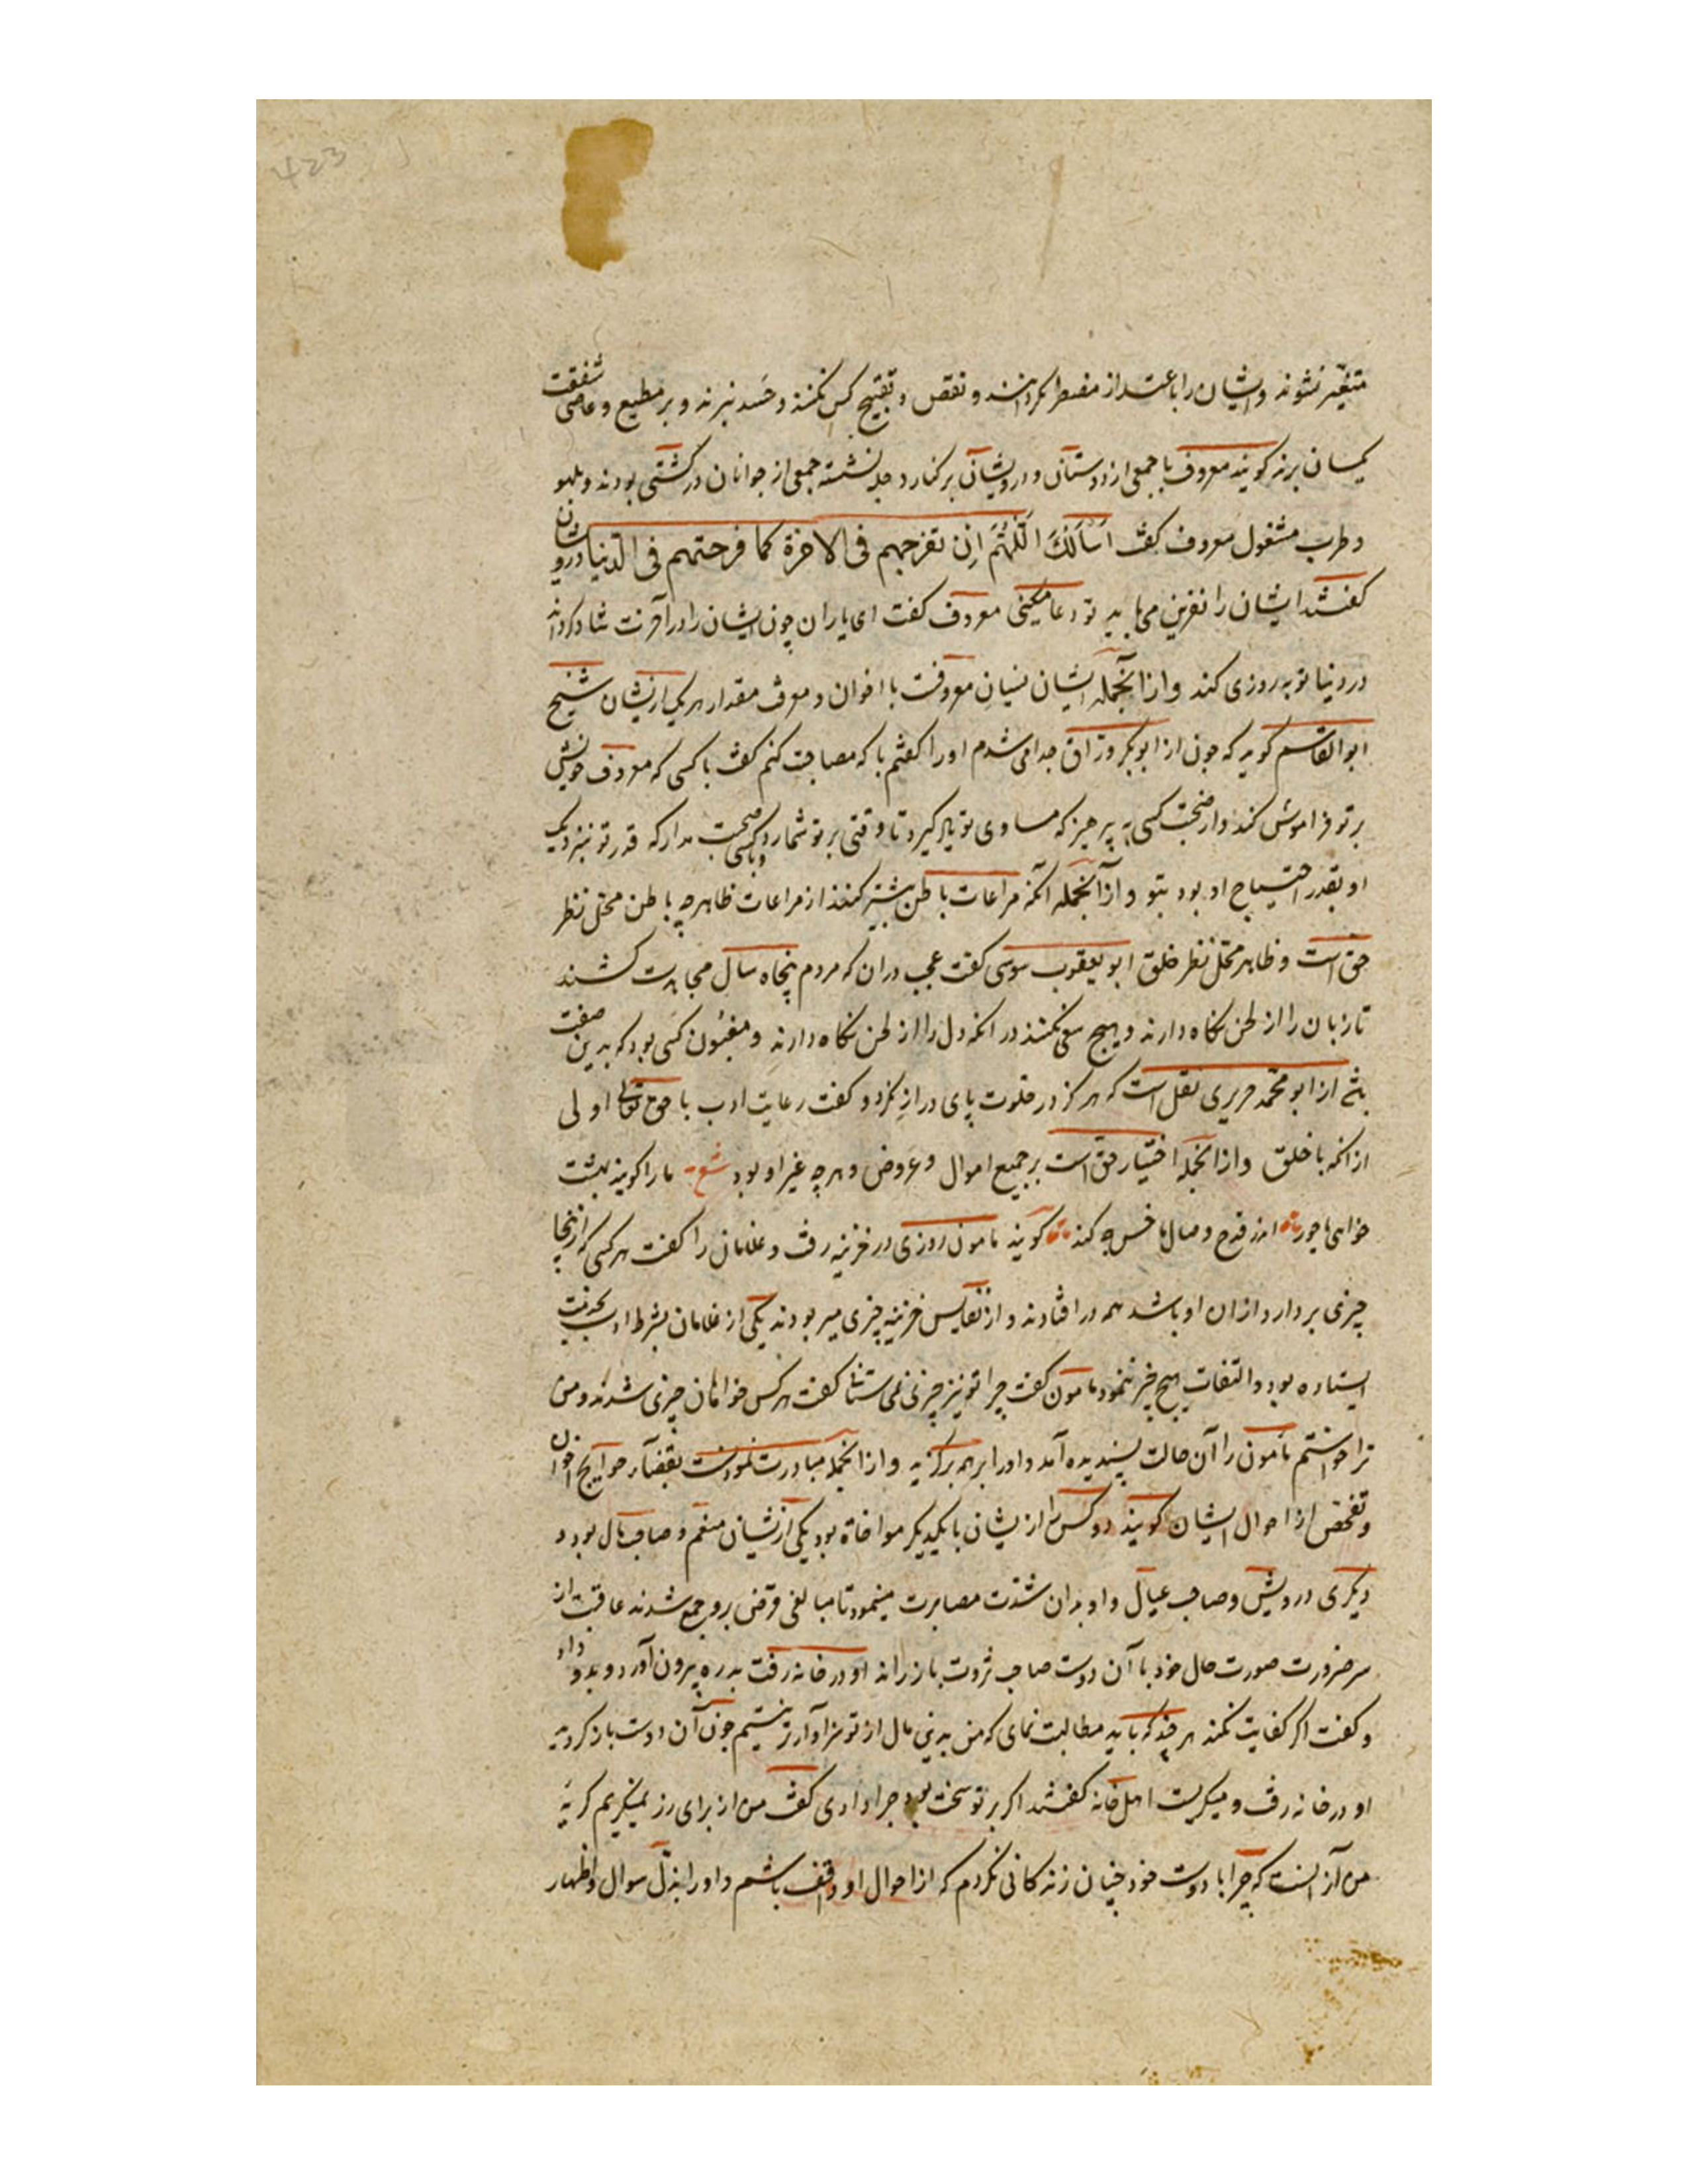 متغیّر نشوند و ایشان را باعتذار مضطر نکردانند و نقص و تقبیح کس نکنند و حَسد نبرند و بر مطیع و عاصی شفقت
یکسان برند کویند معروف با جمعی از دوستان و درویشان بر کنار دجله نشسته جمعی از جوانان در کشتی بودند و بلهو
و طرب مشغول معروف کفت اَسْاَلُكَ اَللّٰهُمَّ اَنْ تفرحهم فی الاخرة کما فرحتهم فی الدنیا درویشان
کفتند ایشان را نفرین می باید تو دعا میکنی معروف کفت ای یاران چون ایشان را در آخرت شاد کرداند
در دنیا توبه روزی کند و از آنجمله ایشان نسیان معروفست با اخوان و معرفت مقدار هر یک از ایشان شیخ
ابوالقاسم کوید که چون از ابوبکر ورّاق جدا می شدم او را کفتم با که مصاحبت کنم کفت با کسی که معروف خویش
بر تو فراموش کند و از صحبت کسی بپرهیز که مساوی تو یاد کیرد تا وقتی بر تو شمارد و با کسی صحبت مدار که قدر تو نزدیک
او بقدر احتیاج او بود بتو و از آنجمله آنکه مراعات باطن بیشتر کنند از مراعات ظاهر چه باطن محلّ نظر
حق است و ظاهر محلّ نظر خلق ابو یعقوب سوسی کفت عجب در آن که مردم پنجاه سال مجاهدت کشند
تا زبان را از لحن نکاه دارند و هیچ سعی نکنند در آنکه دل را از لحن نکاه دارند و مغبُون کَسی بود که بدین صفت
باشد از ابو محمّد حریری نقل است که هرکز در خلوت پای دراز نکرد و کفت رعایت ادب با حق تعالی اولی
از آنکه با خلق و از آنجمله اختیار حق است بر جمیع اموال و عروض و هرچه غیر او بود شعر ما را کویند بهشت
خواهی یا حور ارزد و صال ها خرج کند کویند مامون روزی در خزینه رفت و غلامان را کفت هر کسی که از اینجا
چیزی بردارد از ان او باشد همه در افتادند و از نفایس خزینه چیزی میربودند یکی از غلامان بشرط ادب بخدمت
ایستاده بود و التفات بهیچ چیز ننمود مامون کفت چرا تو نیز چیزی نمی ستانی کفت هر کس خواهان چیزی شدند و من
ترا خواستم مامون را آن حالت پسندیده آمد و او را بر همه برکزید و از آنجمله مبادرت نمودنست بقضآء حوایج اخوان
و تفحّص از احوال ایشان کویند دو کس را از یشان با یکدیکر مواخاة بود یکی از یشان منعم و صاحب مال بود و
دیکری درویش و صاحب عیال و او بدان شدّت مصابرت مینمود تا مبالغی قرض برو جمع شدند عاقبت از
سر ضرورت صورت حال خود با آن دوست صاحب ثروت باز راند او در خانه رفت بدره بیرون آورد و بدو داد
و کفت اکر کفایت نکند هر چند که باید مطالبت نمای که من بدین مال از تو سزاوارتر نیستم چون آن دوست باز کردید
او در خانه رفت و میکریست اهل خانه کفتند اکر بر تو سخت بود چرا دادی کفت من از برای زر نمیکریم کریهٔ
من آز آنست که چرا با دوست خود چنان زندکانی نکردم که از احوال او واقف باشم و او را بذلّ سوال و اظهار